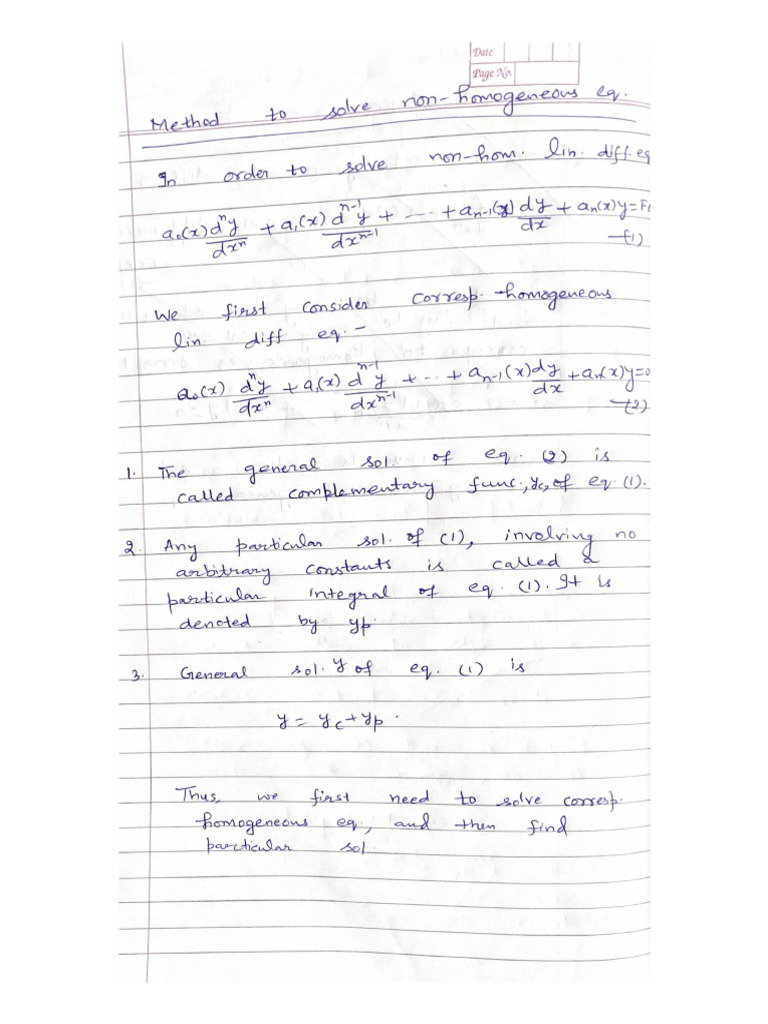 Date
Page No.
Method to solve non-homogeneous eq.
In order to solve non-hom. lin. diff. eq
a₀(x) dⁿy/dxⁿ + a₁(x) dⁿ⁻¹y/dxⁿ⁻¹ + --- + aₙ₋₁(x) dy/dx + aₙ(x)y = F(
—(1)
We first consider corresp. homogeneous
lin. diff eq. –
a₀(x) dⁿy/dxⁿ + a₁(x) dⁿ⁻¹y/dxⁿ⁻¹ + --- + aₙ₋₁(x) dy/dx + aₙ(x)y = 0
—(2)
1. The general sol. of eq. (2) is
called complementary func., y_c, of eq. (1).
2. Any particular sol. of (1), involving no
arbitrary constants is called a
particular integral of eq. (1). It is
denoted by yp.
3. General sol. y of eq. (1) is
y = y_c + yp.
Thus, we first need to solve corresp.
homogeneous eq., and then find
particular sol.